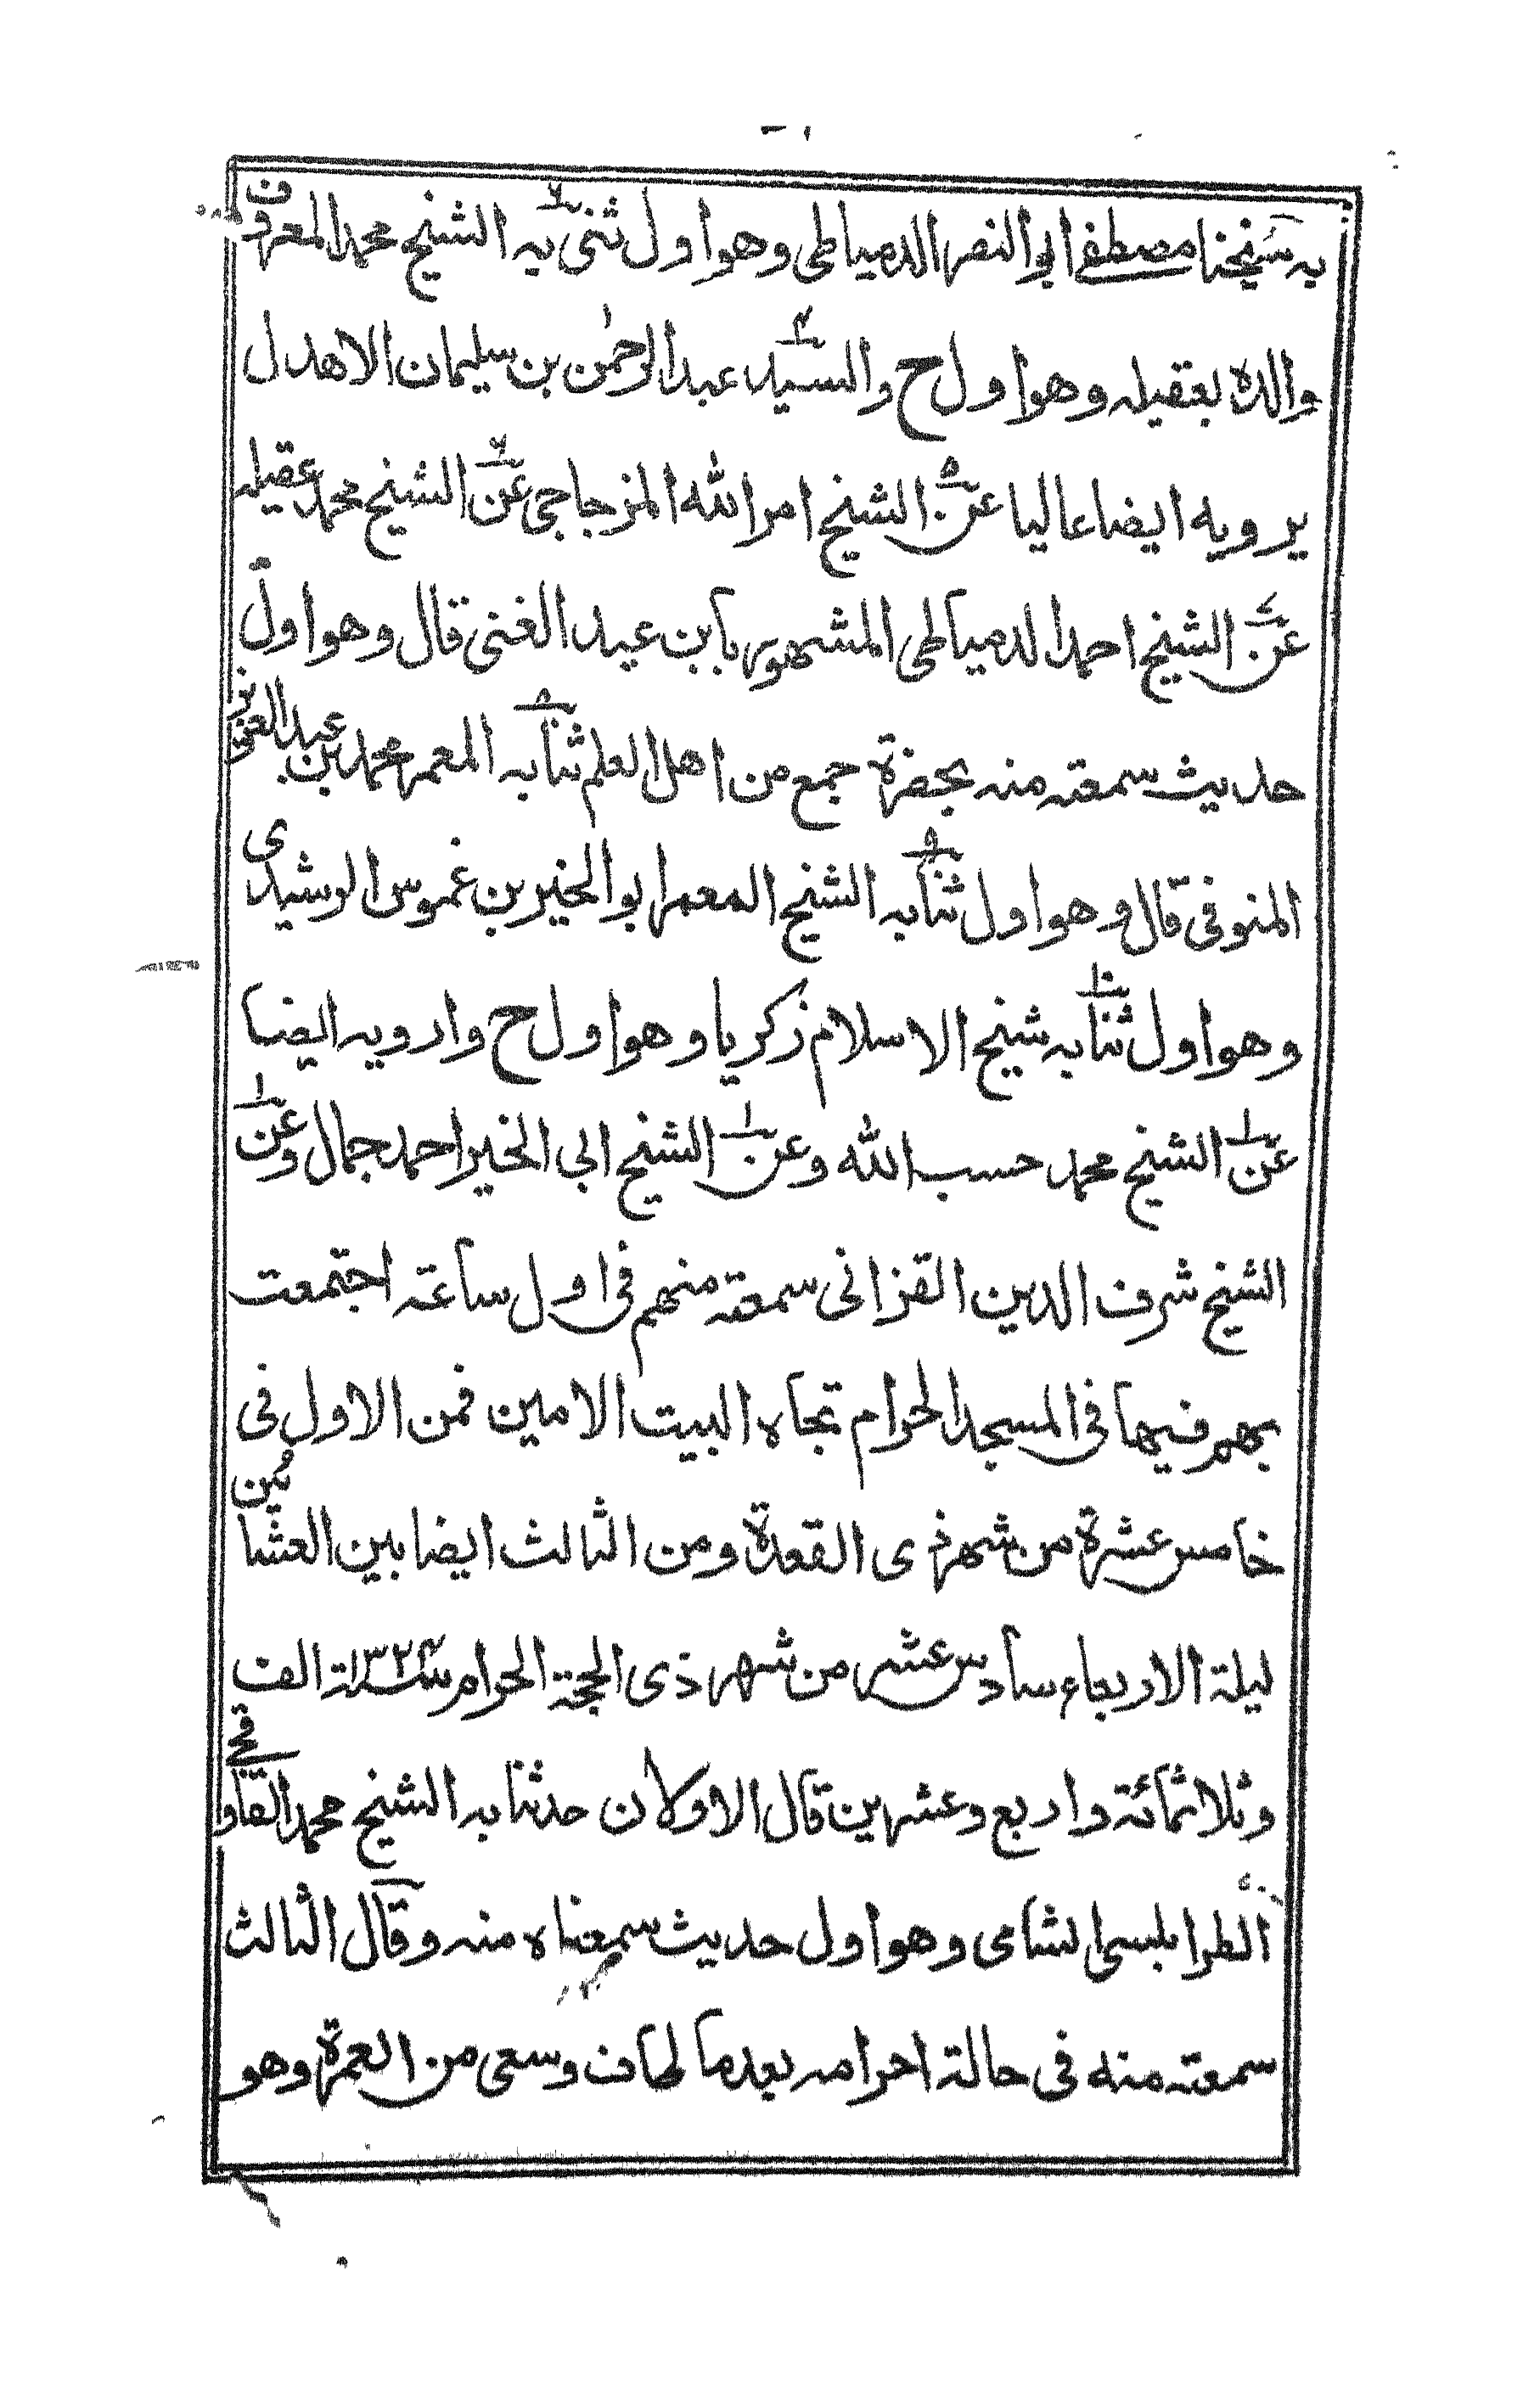 به شيخنا مصطفى ابو النصر الدمياطى وهو اول ثنى به الشيخ محمد المعروف
والده بعقيله وهو اول ح والسيد عبد الرحمن بن سليمان الاهدل
يرويه ايضا عاليا عن الشيخ امر الله المزجاجى عن الشيخ محمد عقيله
عن الشيخ احمد الدمياطى المشهور بابن عبد الغنى قال وهو اول
حديث سمعته منه بحضرة جمع من اهل العلم ثنا به المعمر محمد بن عبد العزيز
المنوفى قال وهو اول ثنا به الشيخ المعمر ابو الخير بن غموس الرشيدى
وهو اول ثنا به شيخ الاسلام زكريا وهو اول ح وارويه ايضا
عن الشيخ محمد حسب الله وعن الشيخ ابى الخير احمد جمال وعن
الشيخ شرف الدين القزانى سمعته منهم فى اول ساعة اجتمعت
بهم فيها فى المسجد الحرام تجاه البيت الامين فمن الاول فى
خامس عشرة من شهر ذى القعدة ومن الثالث ايضا بين العشائين
ليلة الاربعاء سادس عشر من شهر ذى الحجة الحرام سنة ١٣٢٤ الف
وثلاثمائة واربع وعشرين قال الاولان حدثنا به الشيخ محمد القاوقجى
الطرابلسى الشامى وهو اول حديث سمعناه منه وقال الثالث
سمعته منه فى حالة احرامه بعدما طاف وسعى من العمرة وهو